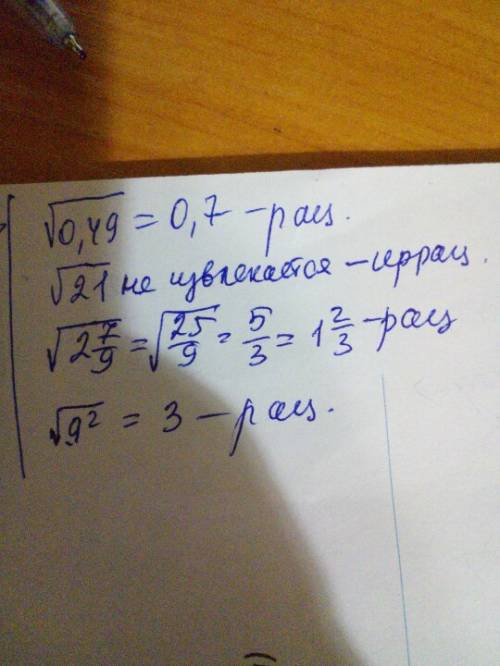 √0,49 = 0,7 – рац.
√21 не извлекается – иррац.
√2 7/9 = √25/9 = 5/3 = 1 2/3 – рац
√9² = 3 – рац.